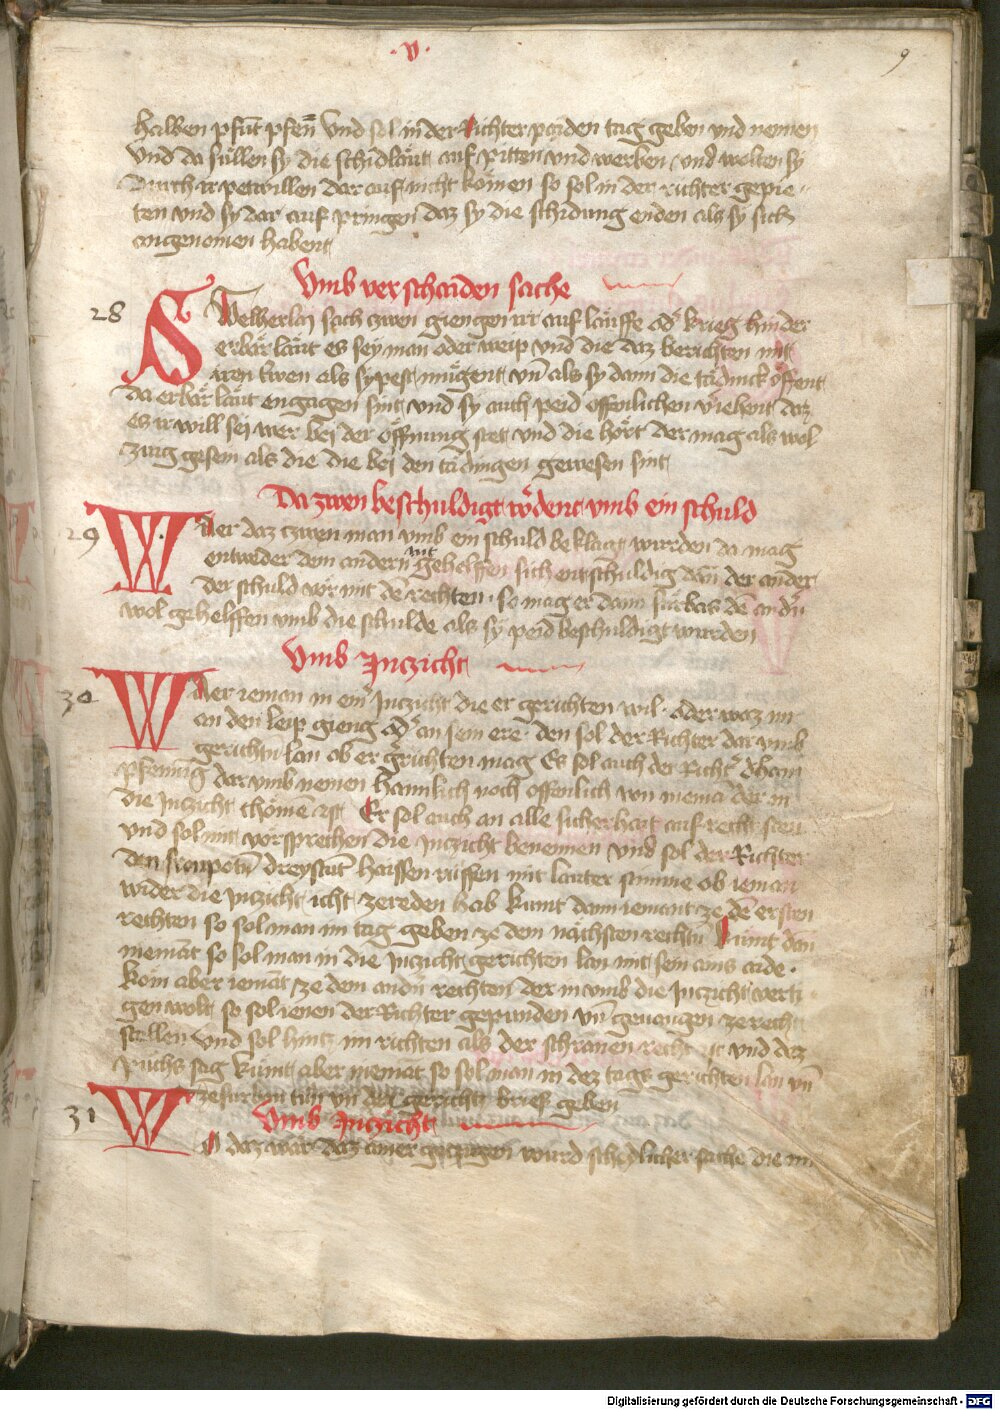 .v.
9
halben pfūt pfeñ vnd sol in der Richter paiden tag geben vnd nemen
vnd da süllen sy die schidläut auf pitten vnd werben vnd wolten sy
durch ir petwillen dar auf nicht kömen so sol in der richter gepie-
ten vnd sy dar auf pringen daz sy die schidung enden als sy sich
angenomen habent
Vmb verschaiden sache
28
Swelherlay sach czwen giengen ir auf läuffe od' krieg hinder
erbär läut es sey man oder weip vnd die daz berichten mit
iren trwen als sy pest mügent vn̄ als sy dann die tädinck offent
da erbär läut engagen sint vnd sy auch peid offenlichen v'iehent daz
es ir will sei wer bei der öffnung stet vnd die hört der mag als wol
zwg gesein als die die bei den tädingen gewesen sint
Da zwen beschuldigt w'dent vmb ein schuld
29
Wder daz czwen man vmb ein schuld beklagt wurden da mag
entweder dem andern nit gehelffen sich entschuldig dan̄ der ander
der schuld vor mit de̅ rechten. so mag er dann fürbas de̅ and'n
wol gehelffen vmb die schulde als sy peid beschuldigt wurden
Vmb Inczicht
30
Wder ieman in ein' Inczicht die er gerichten wil. oder waz im
an den leip gieng od' an sein ere. den sol der Richter dar vmb
gerichtn̄ lan ob er g'ichten mag Es sol auch der Richt' dhain
pfenning dar vmb nemen haimlich noch offenlich von niema̅ der in
die Inczicht chömen ist Er sol auch an alle sicherhait auf recht sten
vnd sol mit vorsprechen die Inczicht benennen vnd sol der Richter
den fronpotn̄ dreystūt haissen rüffen mit lauter stimme ob ieman
wider die Inczicht icht zereden hab kumt dann iemant ze de̅ ersten
rechten so sol man im tag geben ze dem nächsten rechtn̄ kümt dan̄
niema̅t so sol man in die Inczicht gerichten lan mit sein ains aide.
Kom aber iema̅t ze dem and'n rechten der in vmb die Inczicht verti-
gen wolt so sol ienen der Richter gepunden vn̄ geuangen ze recht
stellen vnd sol hintz im richten als der schrannen recht ist vnd daz
půch sag kümt aber niema̅t so sol man in dez tags gerichten lan vn̄
ze fürban tůn vn̄ dez gerichtz brief geben
Vmb Inczicht
31
WO daz wär daz ainer geczigen wurd schedlicher sache die im
Digitalisierung gefördert durch die Deutsche Forschungsgemeinschaft - DFG